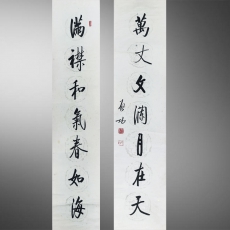 萬丈文瀾月在天
啟功
滿襟和氣春如海